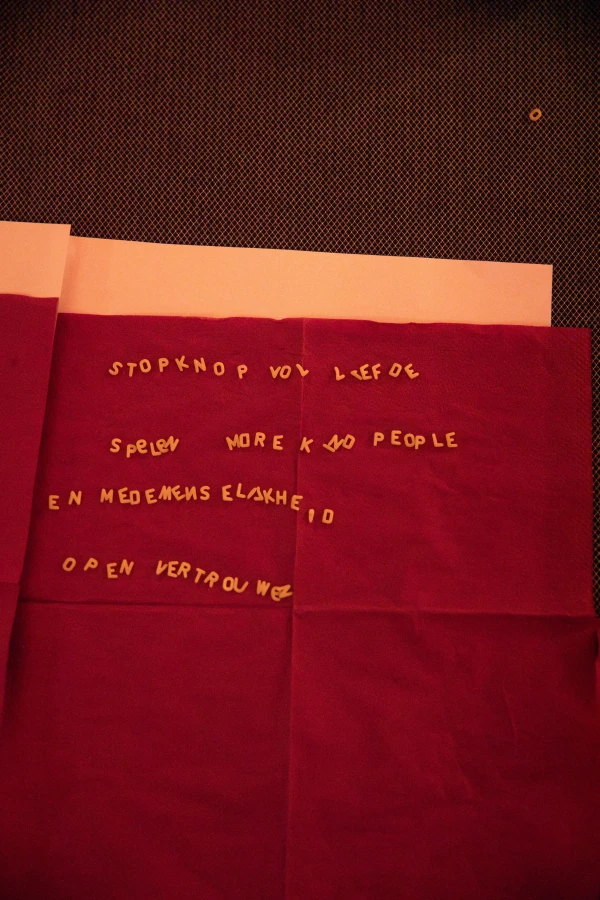 O
STOPKNOP VOL LIEFDE
SPELEN MORE KIND PEOPLE
EN MEDEMENSELIJKHEID
OPEN VERTROUWEN